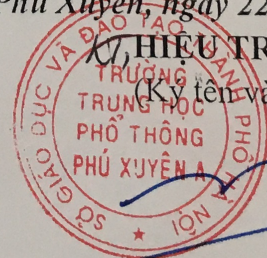 Phú Xuyên, ngày 22
KT, HIỆU TR
(Ký tên và
SỞ GIÁO DỤC VÀ ĐÀO TẠO THÀNH PHỐ HÀ NỘI
TRƯỜNG
TRUNG HỌC
PHỔ THÔNG
PHÚ XUYÊN A